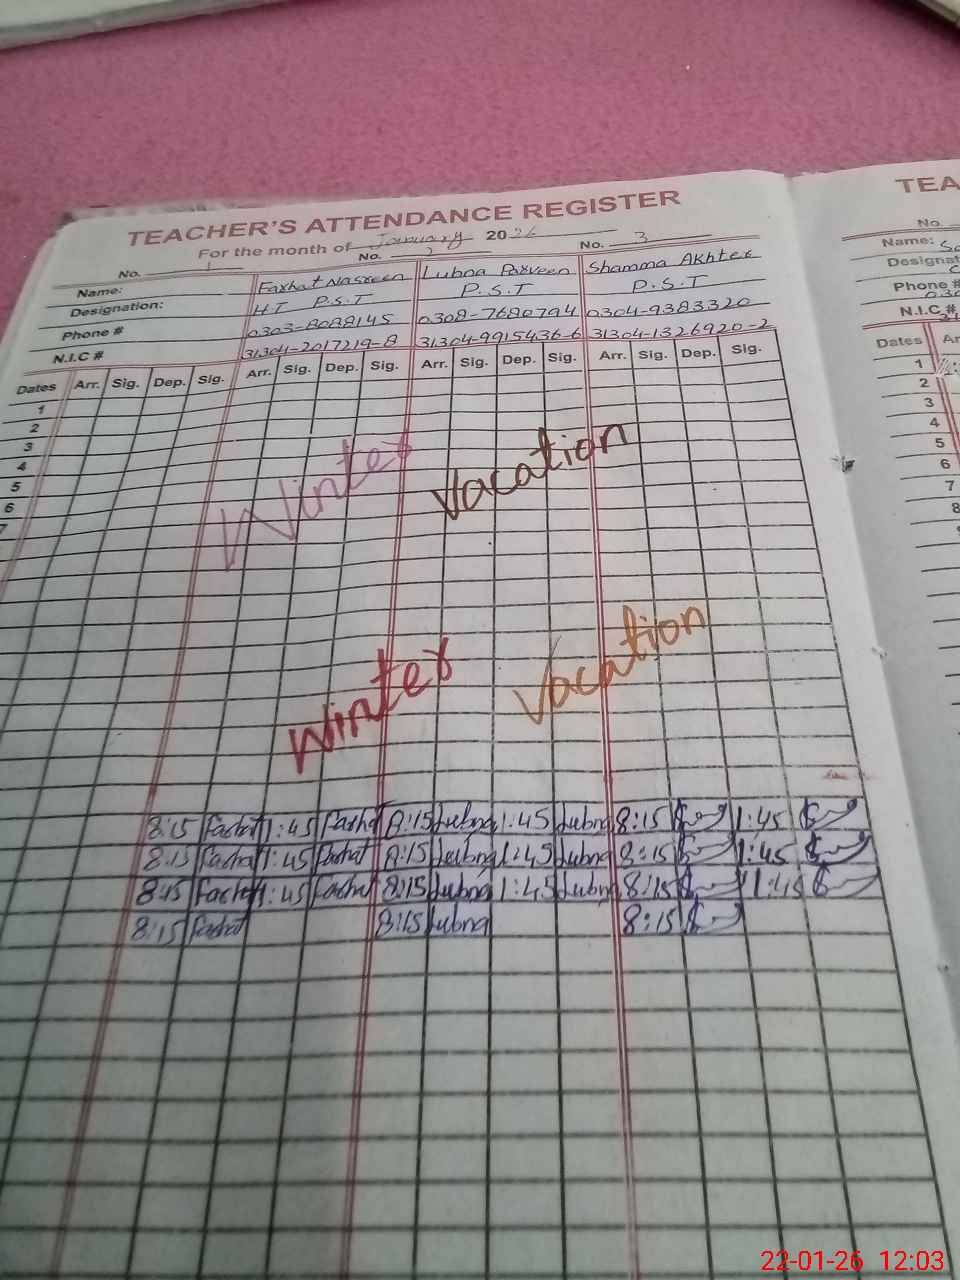 TEACHER'S ATTENDANCE REGISTER
For the month of January 2026
No. 1 No. 2 No. 3
Name: Farhat Nasreen Lubna Parveen Shamma Akhter
Designation: HT P.S.T P.S.T P.S.T
Phone # 0303-8088145 0308-7680794 0304-9383320
N.I.C # 31304-2017219-8 31304-9915436-6 31304-1326920-2
Dates Arr. Sig. Dep. Sig. Arr. Sig. Dep. Sig. Arr. Sig. Dep. Sig. Arr. Sig. Dep. Sig.
1
2
3
4
5
6
7
Winter Vacation
Winter Vacation
8:15 Farhat 1:45 Farhat 8:15 Lubna 1:45 Lubna 8:15 1:45
8:15 Farhat 1:45 Farhat 8:15 Lubna 1:45 Lubna 8:15 1:45
8:15 Farhat 1:45 Farhat 8:15 Lubna 1:45 Lubna 8:15 1:45
8:15 Farhat 8:15 Lubna 8:15
TEA
No.
Name:
Designat
Phone #
N.I.C #
Dates Ar
1
2
3
4
5
6
7
8
22-01-26 12:03